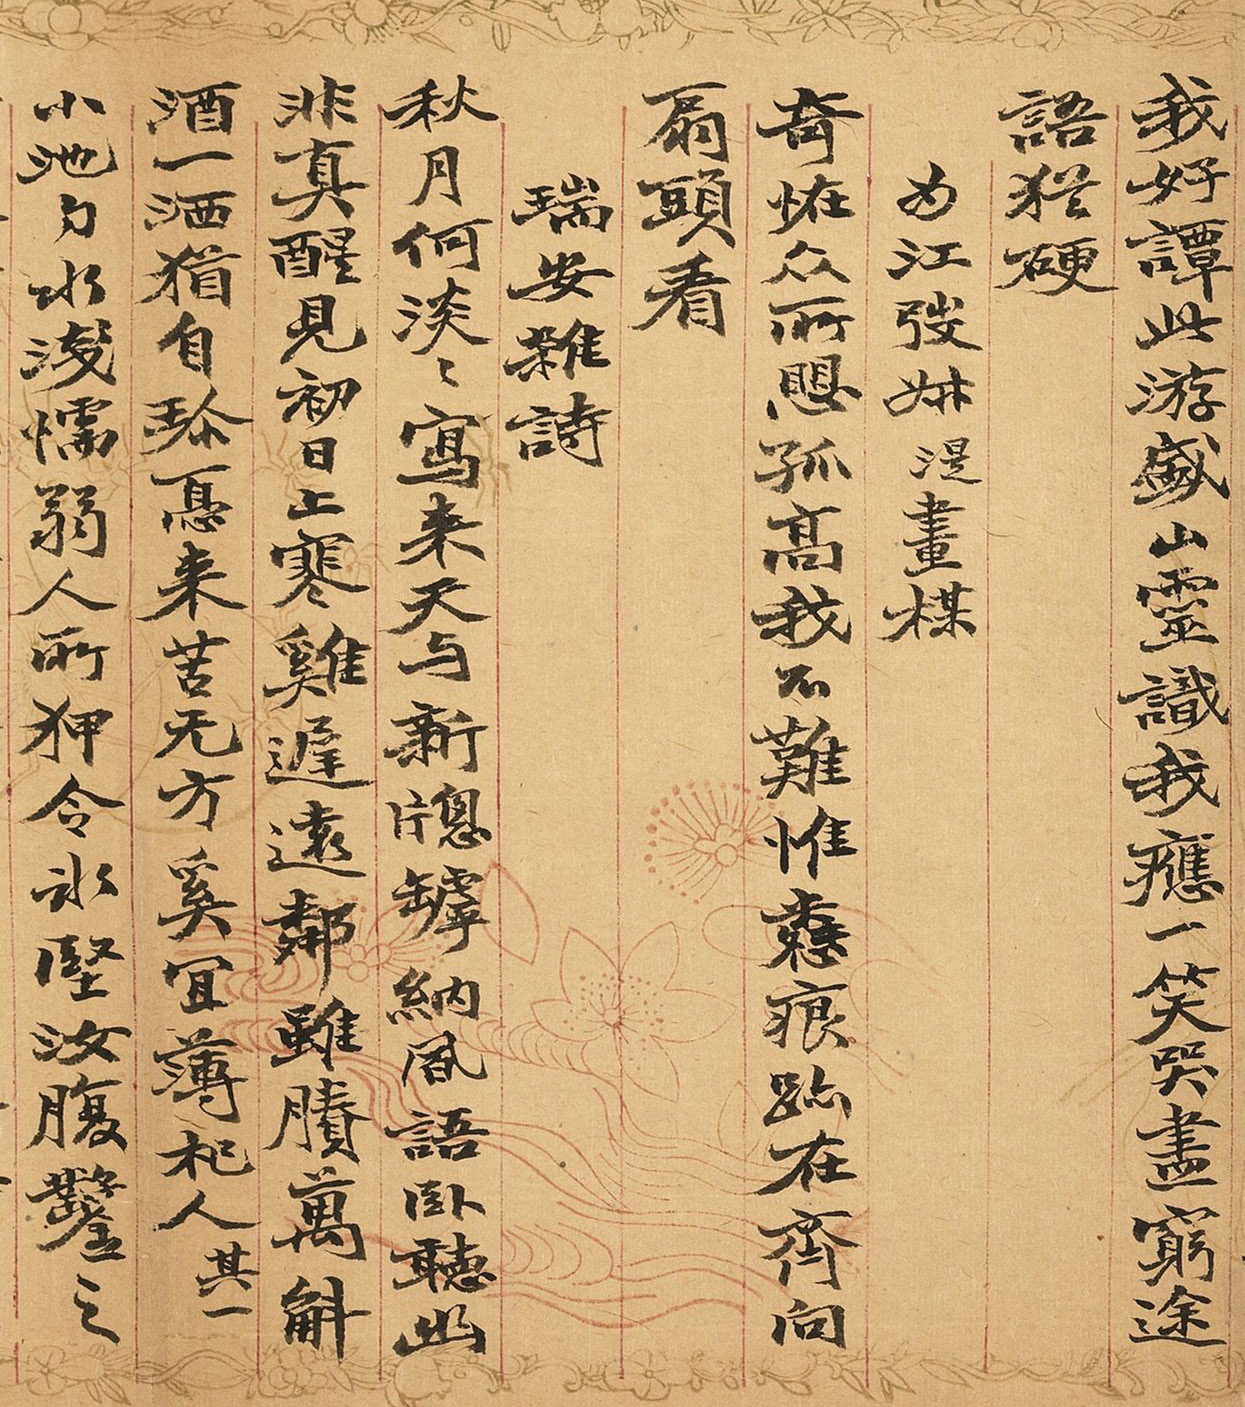 我好譚此游盛山靈識我癮一笑哭盡窮途
語猶硬
為江弢叔湜畫楳
奇恠众所思孤高我不難惟愁痕跡在齊向
扇頭看
瑞安雜詩
秋月何淡〻寫来天与新窻罅納風語卧聽幽
非真醒見初日上寒雞遲遠鄰雖賸萬斛
酒一洒猶自珍憂来苦无方奚宜薄杞人其一
小池勺水淺懦弱人所狎令氷堅汝腹鑿之